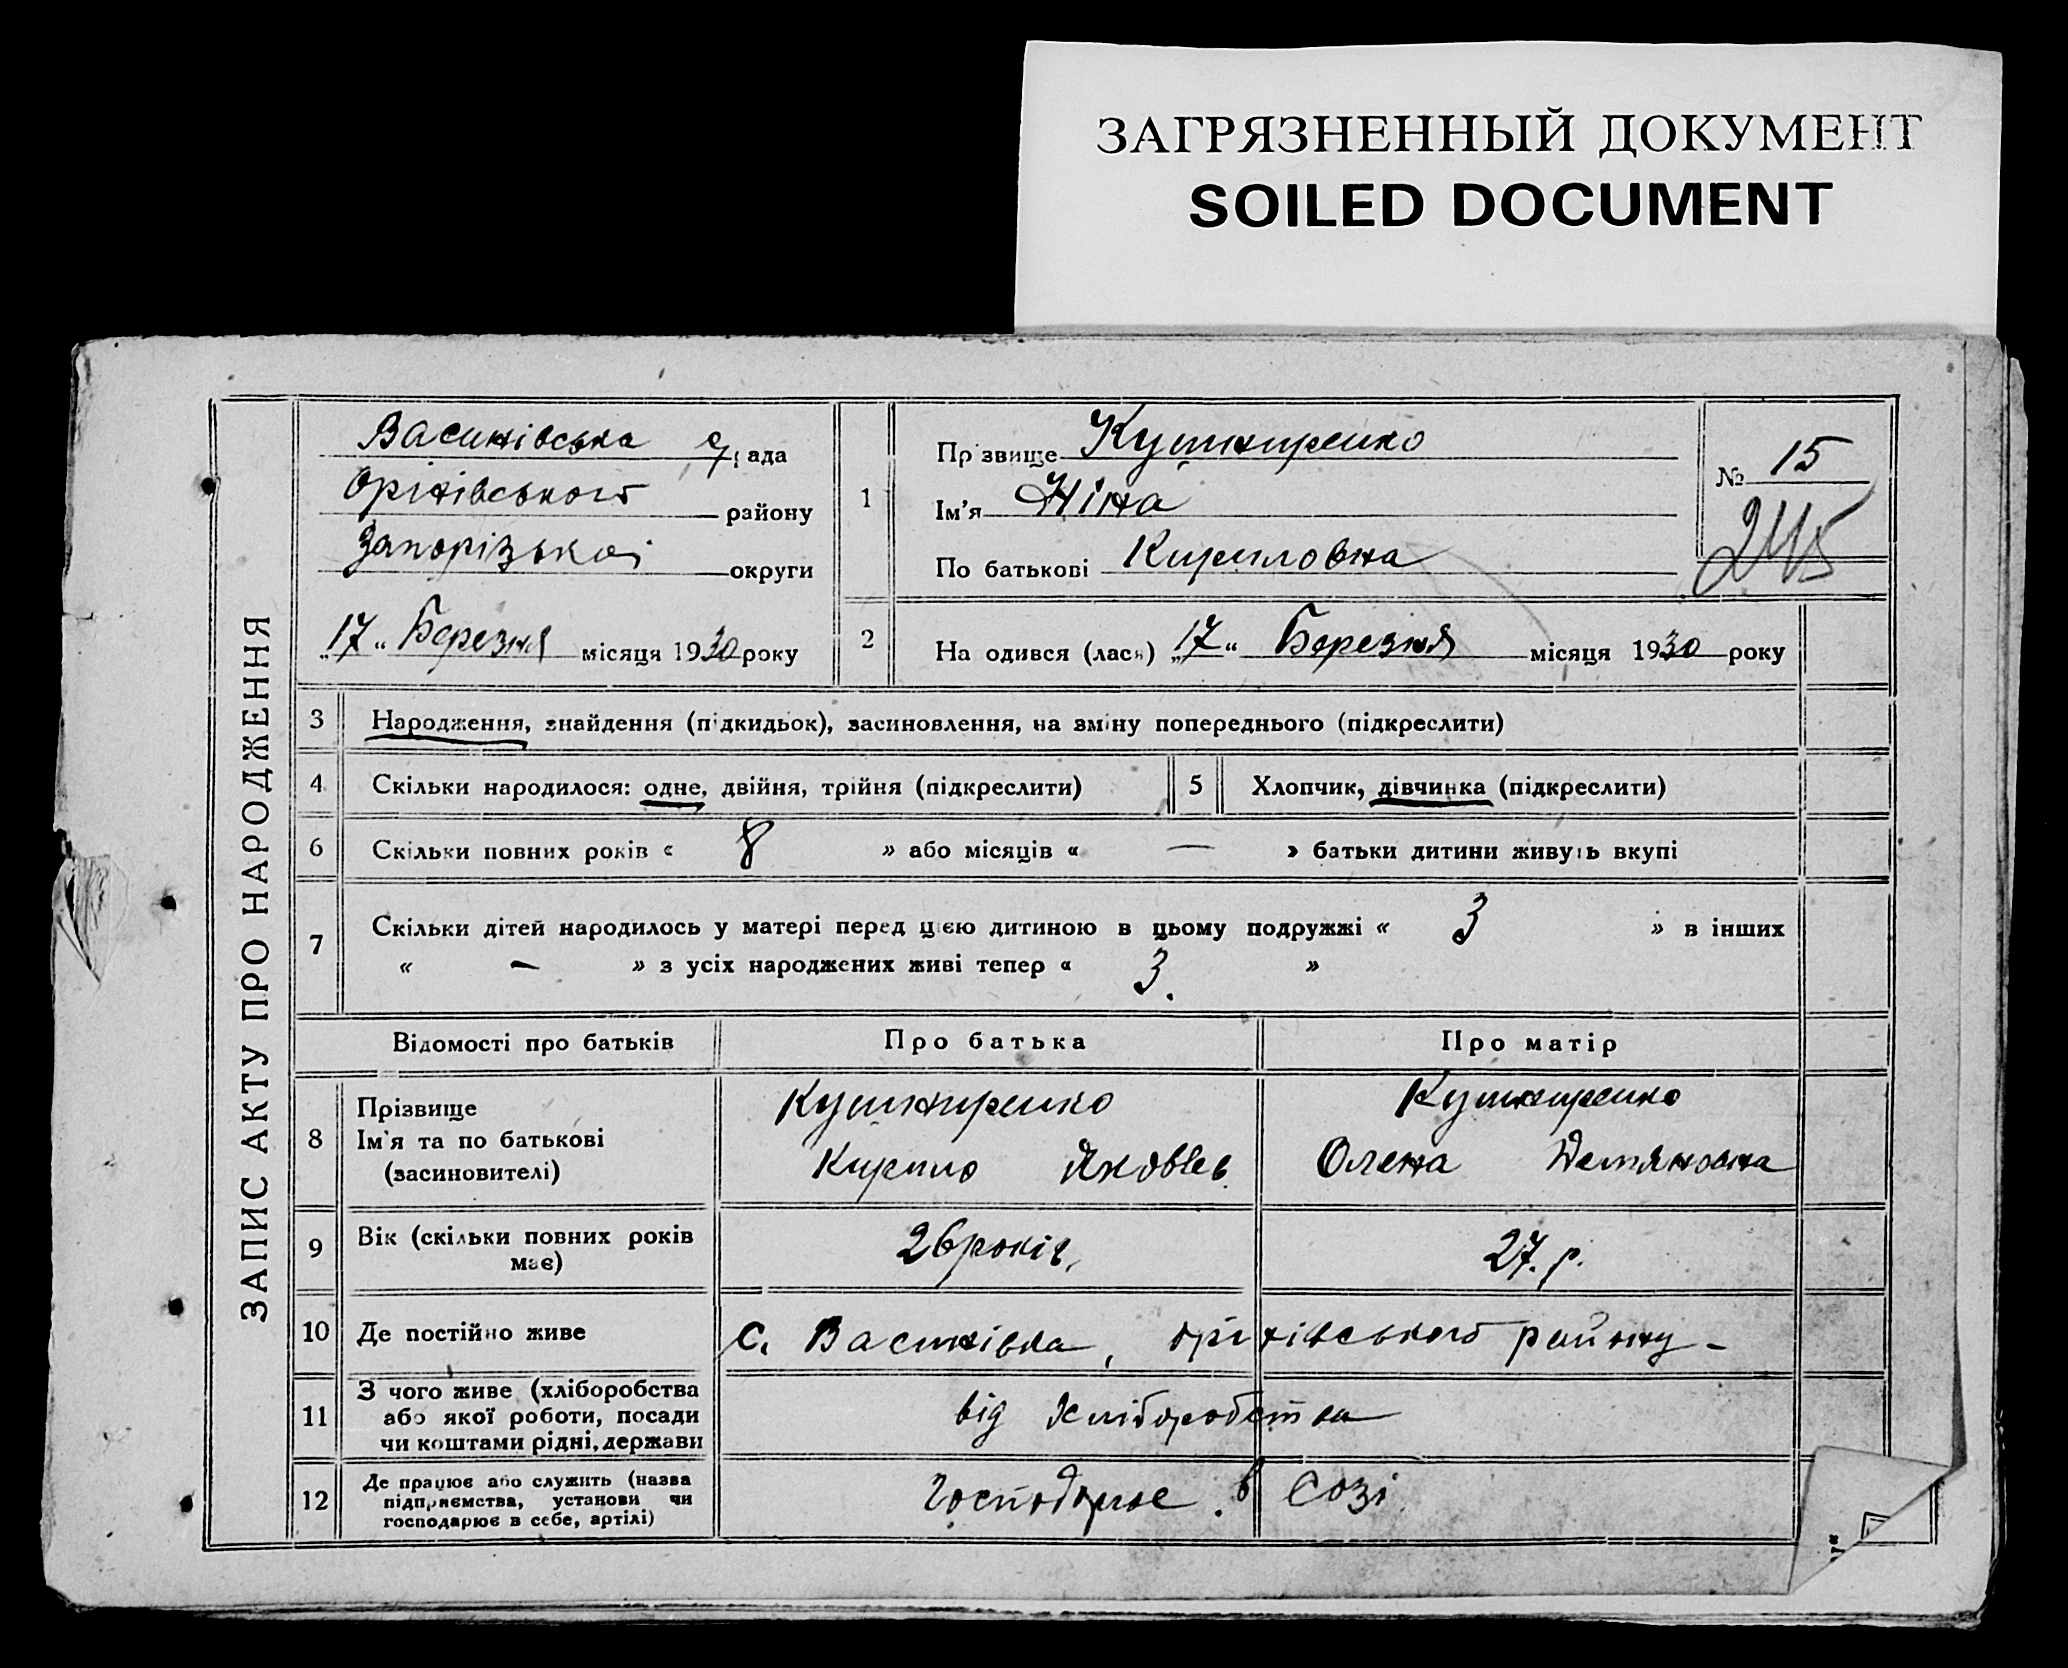 ЗАГРЯЗНЕННЫЙ ДОКУМЕНТ
SOILED DOCUMENT
ЗАПИС АКТУ ПРО НАРОДЖЕННЯ
Василівська с/рада
Оріхівського району
Запорізької округи
„17“ Березня місяця 1930 року
1
Прізвище Кушниренко
Ім'я Ніна
По батькові Кириловна
№ 15
245
2
Народився (лася) „17“ Березня місяця 1930 року
3 Народження, знайдення (підкидьок), засиновлення, на зміну попереднього (підкреслити)
4 Скільки народилося: одне, двійня, трійня (підкреслити)
5 Хлопчик, дівчинка (підкреслити)
6 Скільки повних років « 8 » або місяців « — » батьки дитини живуть вкупі
7 Скільки дітей народилось у матері перед цією дитиною в цьому подружжі « 3 » в інших
« — » з усіх народжених живі тепер « 3. »
Відомості про батьків Про батька Про матір
8 Прізвище
Ім'я та по батькові
(засиновителі)
Кушниренко
Кирило Яковлев
Кушниренко
Олена Демяновна
9 Вік (скільки повних років
має)
26 років,
27. р.
10 Де постійно живе
с. Василівка, Оріхівського району -
11 З чого живе (хліборобства
або якої роботи, посади
чи коштами рідні, держави
від хліборобства
12 Де працює або служить (назва
підприємства, установи чи
господарює в себе, артілі)
господарює в Созі